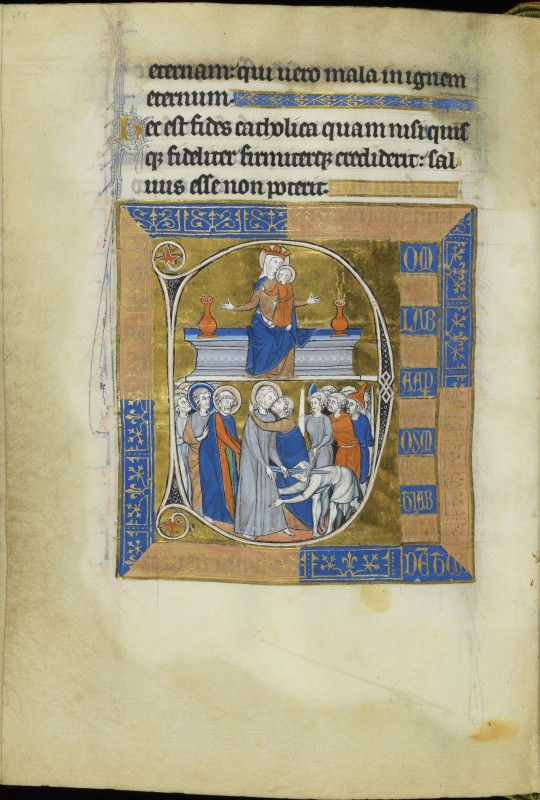 eternam: qui uero mala in ignem
eternum.
Hec est fides catholica quam nisi quis
qꝫ fideliter firmiterqꝫ crediderit: sal
uus esse non poterit.
D
OM
LAB
OSM